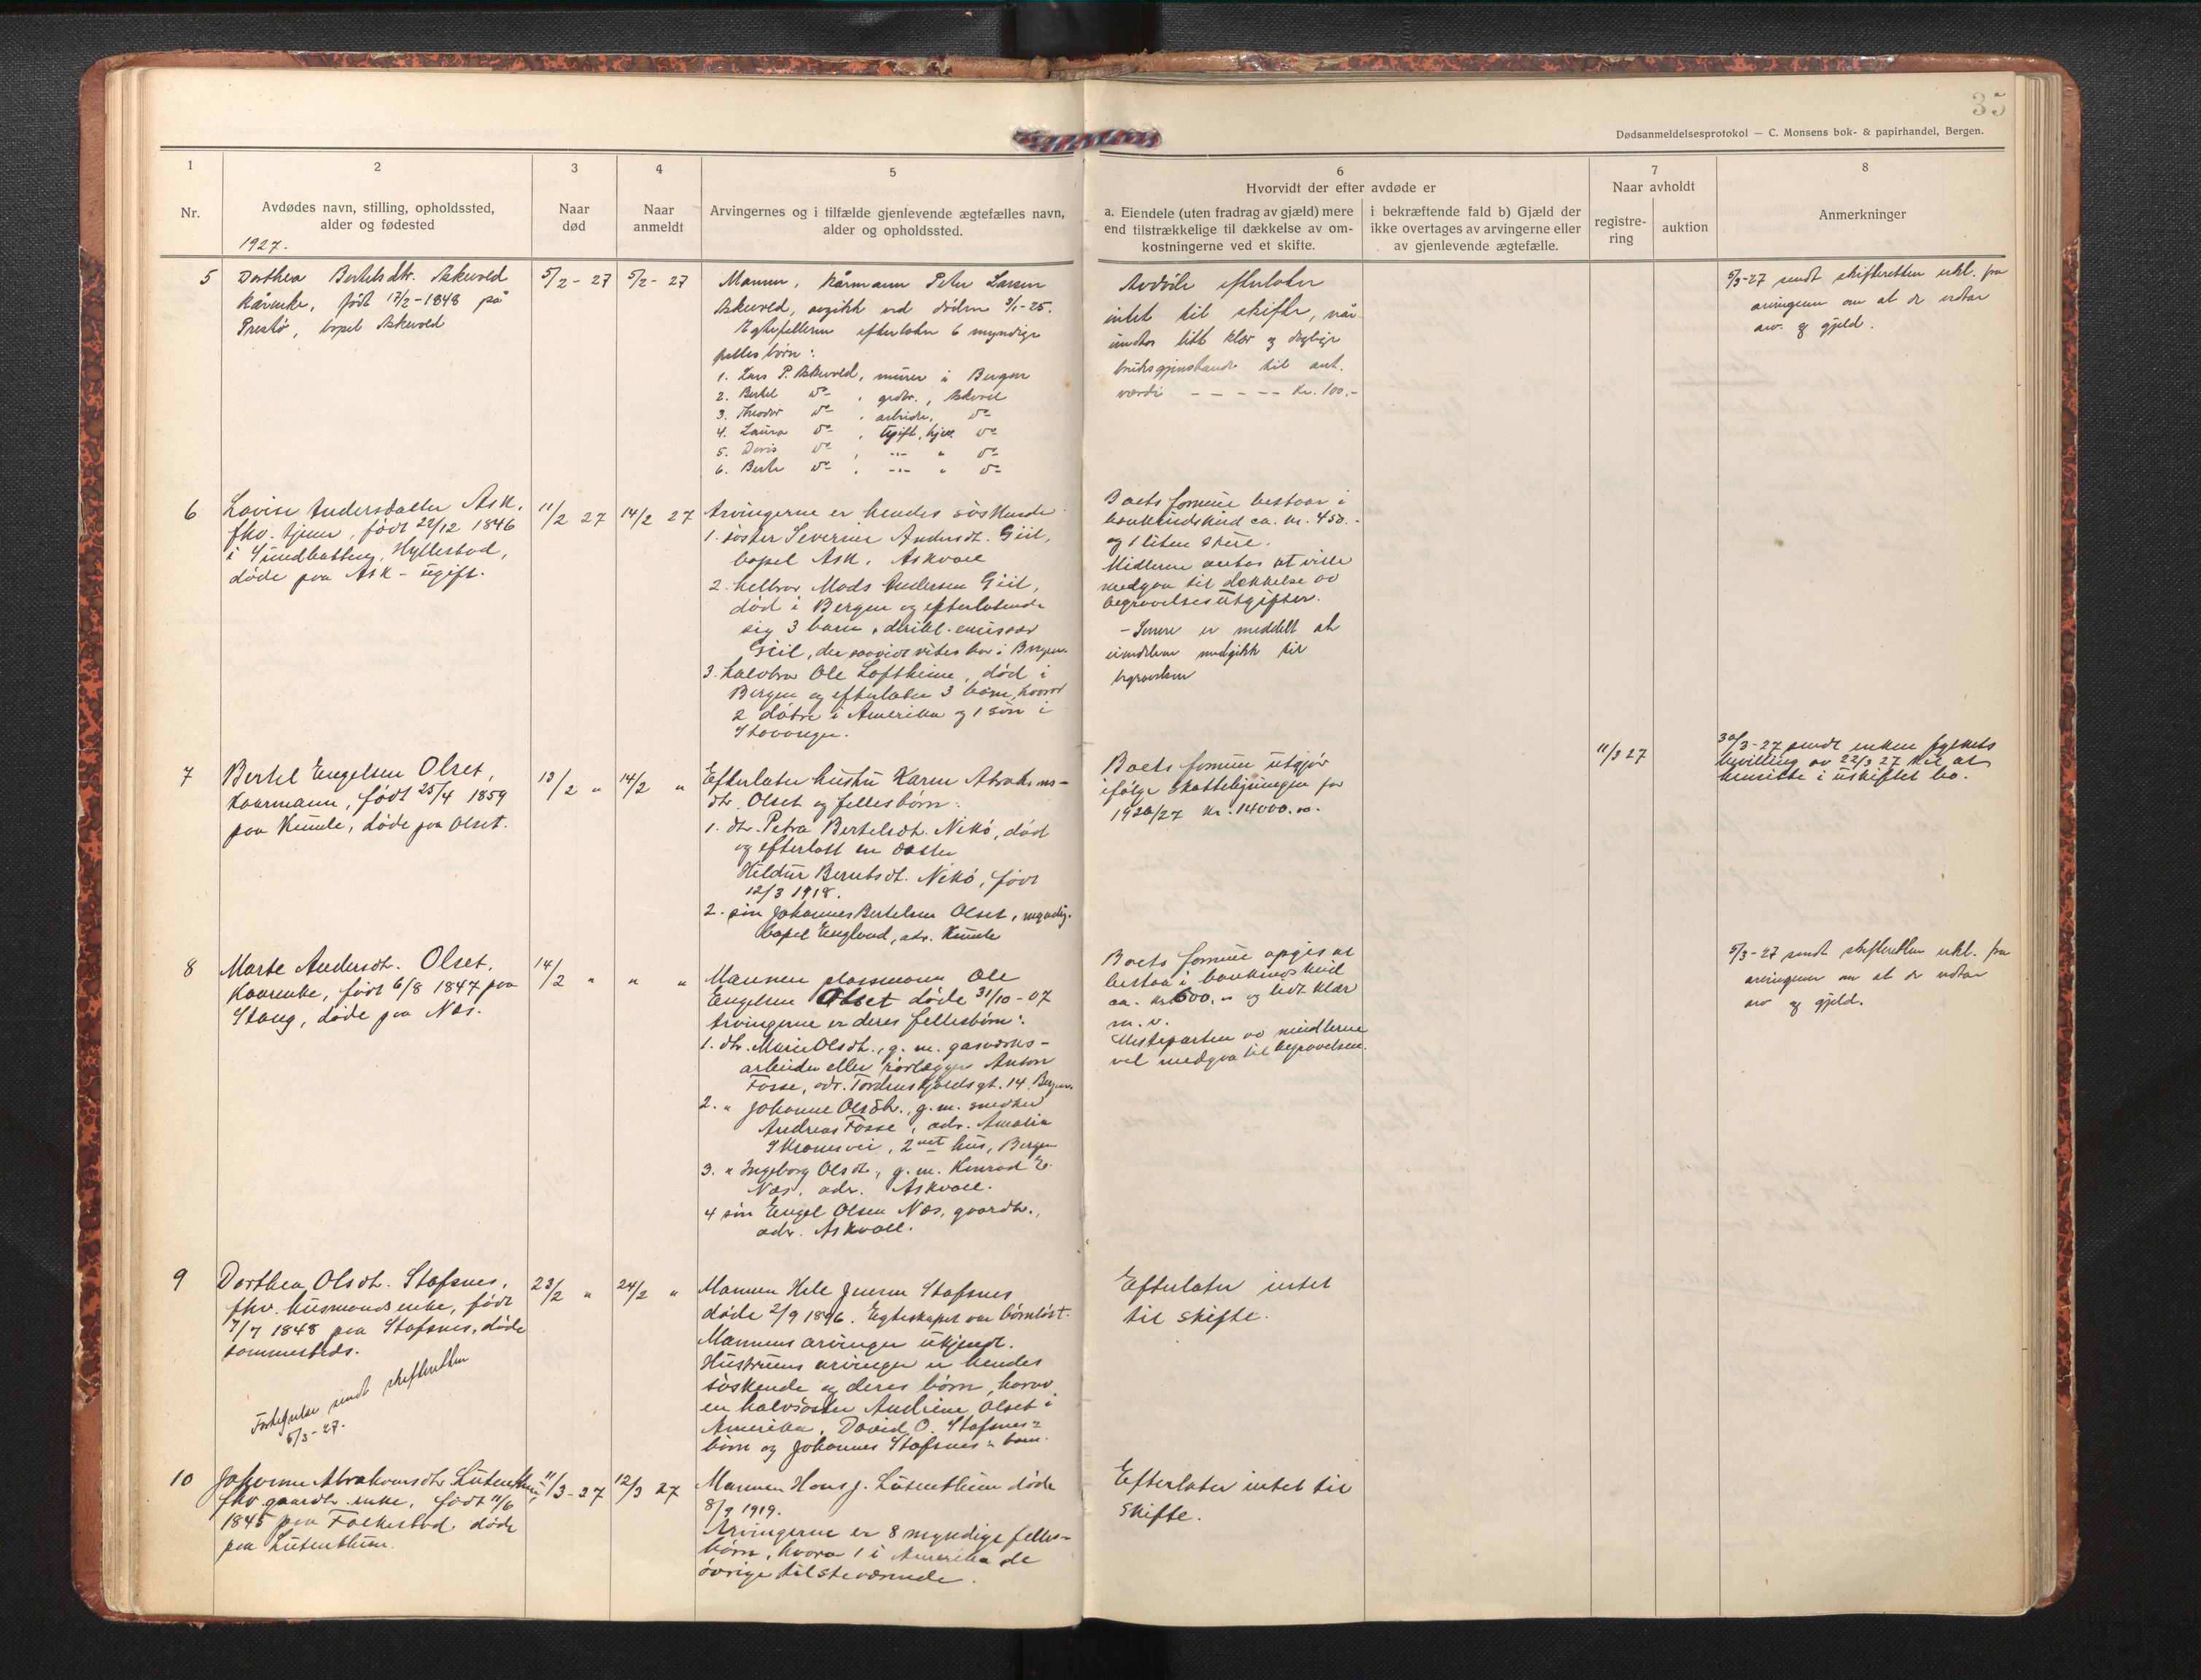 35
Dødsanmeldelsesprotokol — C. Monsens bok- & papirhandel, Bergen.
1
2
3
4
5
6
7
8
Nr.
Avdødes navn, stilling, opholdssted,
alder og fødested
Naar
død
Naar
anmeldt
Arvingernes og i tilfælde gjenlevende ægtefælles navn,
alder og opholdssted.
Hvorvidt der efter avdøde er
a. Eiendele (uten fradrag av gjæld) mere
end tilstrækkelige til dækkelse av om-
kostningerne ved et skifte.
i bekræftende fald b) Gjæld der
ikke overtages av arvingerne eller
av gjenlevende ægtefælle.
Naar avholdt
registre-
ring
auktion
Anmerkninger
1927.
5
Dorthea Bertelsdtr. Askvold
kårenke, født 17/2-1848 på
Prestø, bopel Askvold
5/2-27
5/2-27
Mannen, kårmann Peter Larsen
Askvold, avgikk ved døden 3/1-25.
Egtefellerne efterlater 6 myndige
felles børn:
1. Lars P. Askvold, murer i Bergen
2. Bertel do , grdbr., Askvoll
3. Theodor do , arbeider, do
4. Laura do , ugift, hjem. do
5. Doris do , -"- " do
6. Berte do , -"- " do
Avdøde efterlater
intet til skifte, når
undtas litt klær og daglige
bruksgjenstande til ant.
værdi - - - - - Kr. 100,-
5/3-27 sendt skifteretten erkl. fra
arvingerne om at de vedtar
arv og gjeld.
6
Lovise Andersdatter Ask,
fhv. tjener, født 22/12 1846
i Sundbatten, Hyllestad,
døde paa Ask - ugift.
11/2 27
14/2 27
Arvingerne er hendes søskende:
1. søster Severine Andersdt. Geil,
bopel Ask, Askvoll
2. helbror Mads Andersen Geil,
død i Bergen og efterlatende
sig 3 barn, emissær
Geil, der saavidt vites bor i Bergen.
3. halvbror Ole Loftheim, død i
Bergen og efterlater 3 børn, hvorav
2 døtre i Amerika og 1 søn i
Stavanger.
Boets formue bestaar i
bankindskud ca. kr. 450.-
og 1 liten stue.
Midlerne antas at ville
medgaa til dekkelse av
begravelsesutgifter.
- Senere er meddelt at
eiendelene medgikk til
begravelsen
7
Bertel Engelsen Olset,
kaarmann, født 25/4 1859
paa Kumle, døde paa Olset.
13/2 "
14/2 "
Efterlater hustru Karen Abrahams-
dtr. Olset og fellesbørn:
1. dtr. Petra Bertelsdt. Nekø, død
og efterlatt en datter
Hildur Berntsdt. Nekø, født
12/3 1918.
2. søn Johannes Bertelsen Olset, myndig.
bopel Englund, adr. Kumle
Boets formue utgjør
ifølge skatteligningen for
1926/27 kr. 14000.00.
11/3 27
30/3-27 sendt enken fylkets
bevilling av 22/3 27 til at
hensitte i uskiftet bo.
8
Marte Andersdt. Olset,
kaarenke, født 6/8 1847 paa
Stang, døde paa Nes.
14/2 "
" "
Mannen plassmann Ole
Engelsen Olset døde 31/10-07
Arvingerne er deres fellesbørn:
1. dtr. Marie Olsdt., g. m. gasverks-
arbeider eller rørlegger Anton
Fosse, adr. Tordenskjoldsgt. 14. Bergen.
2. " Johanne Olsdt., g. m. snedker
Andreas Fosse, adr. Amalie
Skramsvei, 2net hus, Bergen
3. " Ingeborg Olsdt., g. m. Konrad E.
Nes, adr. Askvoll.
4 søn Engel Olsen Nes, gaardbr.,
adr. Askvoll.
Boets formue opgis at
bestaa i bankindskud
ca. kr. 600.00 og lidt klær
m. v.
Mesteparten av midlerne
vel medgaa til begravelsen.
5/3-27 sendt skifteretten erkl. fra
arvingerne om at de vedtar
arv og gjeld.
9
Dorthea Olsdt. Stafsnes,
fhv. husmands enke, født
7/7 1848 paa Stafsnes, døde
sammesteds.
Fortegnelse sendt skifteretten
5/3-27.
23/2 "
24/2 "
Mannen Hele Jensen Stafsnes
døde 2/9 1896. Egteskapet var børnløst.
Mannens arvinger ukjendt.
Hustruens arvinger er hendes
søskende og deres børn, hvorav
en halvsøster Andrine Olset i
Amerika, David O. Stafsnes's
børn og Johannes Stafsnes's barn.
Efterlater intet
til skifte.
10
Johanne Abrahamsdtr. Lutentun
fhv. gaardbr. enke, født 11/6
1845 paa Folkestad, døde
paa Lutentun.
11/3-27
12/3 27
Mannen Hans J. Lutentun døde
8/9 1919.
Arvingerne er 8 myndige felles-
børn, hvorav 1 i Amerika de
øvrige tilstedeværende.
Efterlater intet til
skifte.